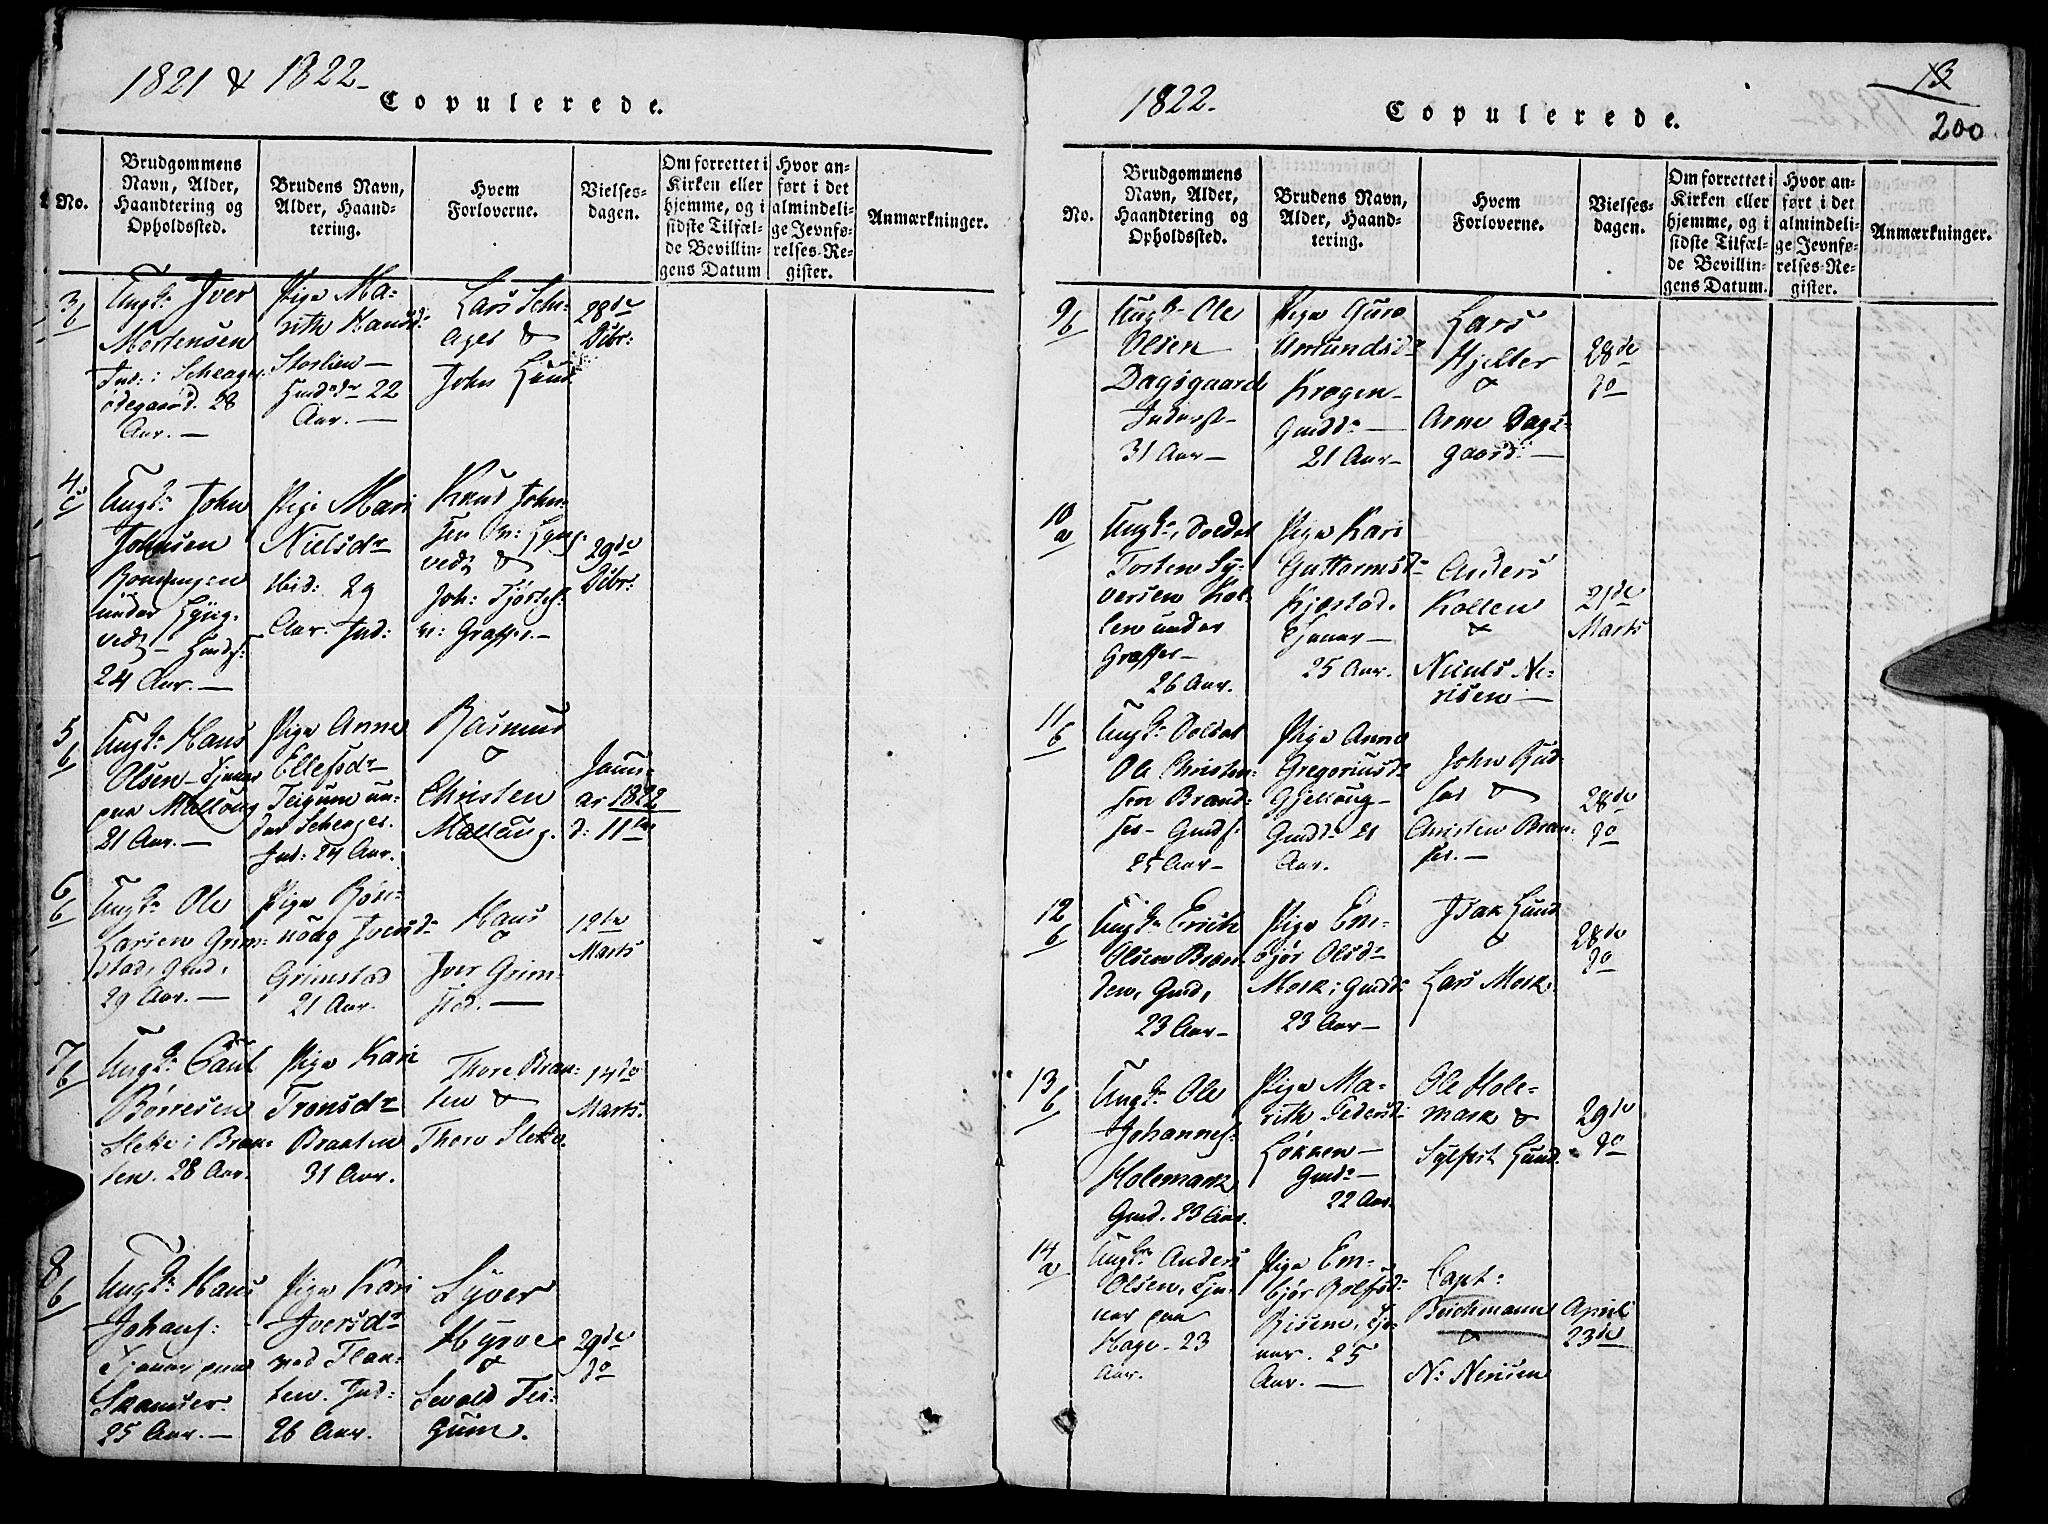 1821 & 1822-
Copulerede.
No.
Brudgommens Navn, Alder, Haandtering og Opholdssted.
Brudens Navn, Alder, Haandtering.
Hvem Forloverne.
Vielses-dagen.
Om forrettet i Kirken eller hjemme, og i sidste Tilfælde Bevillingens Datum
Hvor anført i det almindelige Jevnførelses-Register.
Anmærkninger.
3/b
Ungk: Iver
Mortensen
Ind: i Scheager
ødegaard. 28
Aar. —
Pige Ma-
rith Hansd:
Storlien —
Gudsdr 22
Aar. —
Lars Sche-
ager &
John Lund
28de
Decbr:
4/c
Ungk: John
Johnsen
under Lyng-
vedt
24 Aar. —
Pige Mari
Nielsdr
ibid: 29
Aar. Ind:
Knud John-
sen
vedt &
Joh:
v: Graffer.—
29de
Decbr:
5/b
Ungk: Hans
Olsen Tjener
paa Melloug
21 Aar. —
Pige Anne
Ellefsdr
Teigum un-
der Scheager.
Ind: 24 Aar.
Rasmus
&
Christen
Mellaug.
Janu-
ar 1822
d: 11te
6/b
Ungk: Ole
Larsen Grim-
stad, Gmd,
29 Aar. —
Pige Røn-
naag Iversd:
Grimstad
21 Aar.
Hans
&
Iver Grim-
stad. —
12te
Marts
7/b
Ungk: Poul
Børresen
Slette i Braa-
ten. 28 Aar.
Pige Kari
Tronsdr
Braaten
31 Aar.
Thore Braa-
ten &
Thore Slette.
14de
Marts.
8/b
Ungk: Hans
Johans:
Tjener paa
Skamser.
25 Aar. —
Pige Kari
Iversdr
ved Flaa-
ten. Ind:
26 Aar.
Syver
Hyrve
&
Sevald Tei-
gum.
29de
do
1822.
Copulerede.
13
200
No.
Brudgommens Navn, Alder, Haandtering og Opholdssted.
Brudens Navn, Alder, Haandtering.
Hvem Forloverne.
Vielses-dagen.
Om forrettet i Kirken eller hjemme, og i sidste Tilfælde Bevillingens Datum.
Hvor anført i det almindelige Jevnførelses-Register.
Anmærkninger.
9/b
Ungk: Ole
Olsen
Dagsgaard
Inderst
31 Aar —
Pige Guro
Amundsdr
Krogen —
Gmdd: —
21 Aar —
Lars
Hjelter
&
Arne Dags-
gaard. —
28de
do
10/a
Ungk: Soldat
Torsten Sy-
versen Kol-
len under
Graffer —
26 Aar.
Pige Kari
Guttormsdr
Kjestad.
Tjener —
25 Aar.
Anders
Kollen
&
Niels Ne-
risen —
21de
Marts
11/b
Ungk: Soldat
Ole Christen-
sen Brand-
ser — Gmds:
25 Aar —
Pige Anne
Gregoriusdr
Gjellaug —
Gmdd: 21
Aar.
John Rud-
ser &
Christen Bran-
ser. —
28de
do
12/b
Ungk: Erich
Olsen
Gmd,
23 Aar —
Pige Em-
bjør Olsdr
Mork: Gmdd:
23 Aar —
Isak Lund
&
Lars Mork.
28de
do
13/b
Ungk: Ole
Johannes:
Holemark
Gmd. 23 Aar.
Pige Ma-
rith Pedersd:
Løkken —
Gmdr —
22 Aar.
Ole Hole-
mark &
Sylfest Lund.
29de
do
14/a
Ungk: Anders
Olsen, Tje-
ner paa
Hage. 23
Aar.
Pige Em-
bjør Rolfsdr
Risem, tje-
ner. 25
Aar. —
Capt:
Beichmann
&
N: Nerisen
April
23de